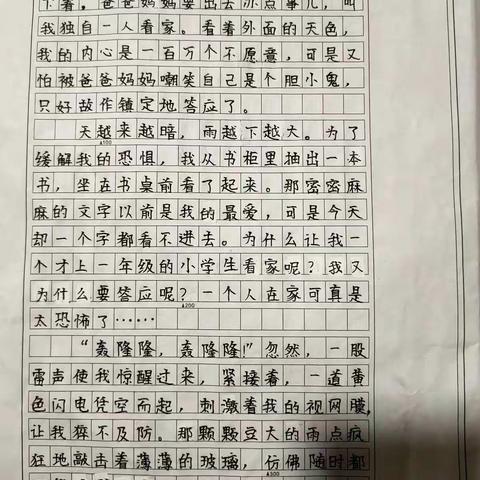 下着。爸爸妈妈要出去办点事儿，叫
我独自一人看家。看着外面的天色，
我的内心是一百万个不愿意，可是又
怕被爸爸妈妈嘲笑自己是个胆小鬼，
只好故作镇定地答应了。
天越来越暗，雨越下越大。为了
▲100
缓解我的恐惧，我从书柜里抽出一本
书，坐在书桌前看了起来。那密密麻
麻的文字以前是我的最爱，可是今天
却一个字都看不进去。为什么让我一
个才上一年级的小学生看家呢？我又
为什么要答应呢？一个人在家可真是
▲200
太恐怖了……
“轰隆隆，轰隆隆！”忽然，一股
雷声使我惊醒过来，紧接着，一道黄
色闪电凭空而起，刺激着我的视网膜，
让我猝不及防。那颗颗豆大的雨点疯
狂地敲击着薄薄的玻璃，仿佛随时都
▲300